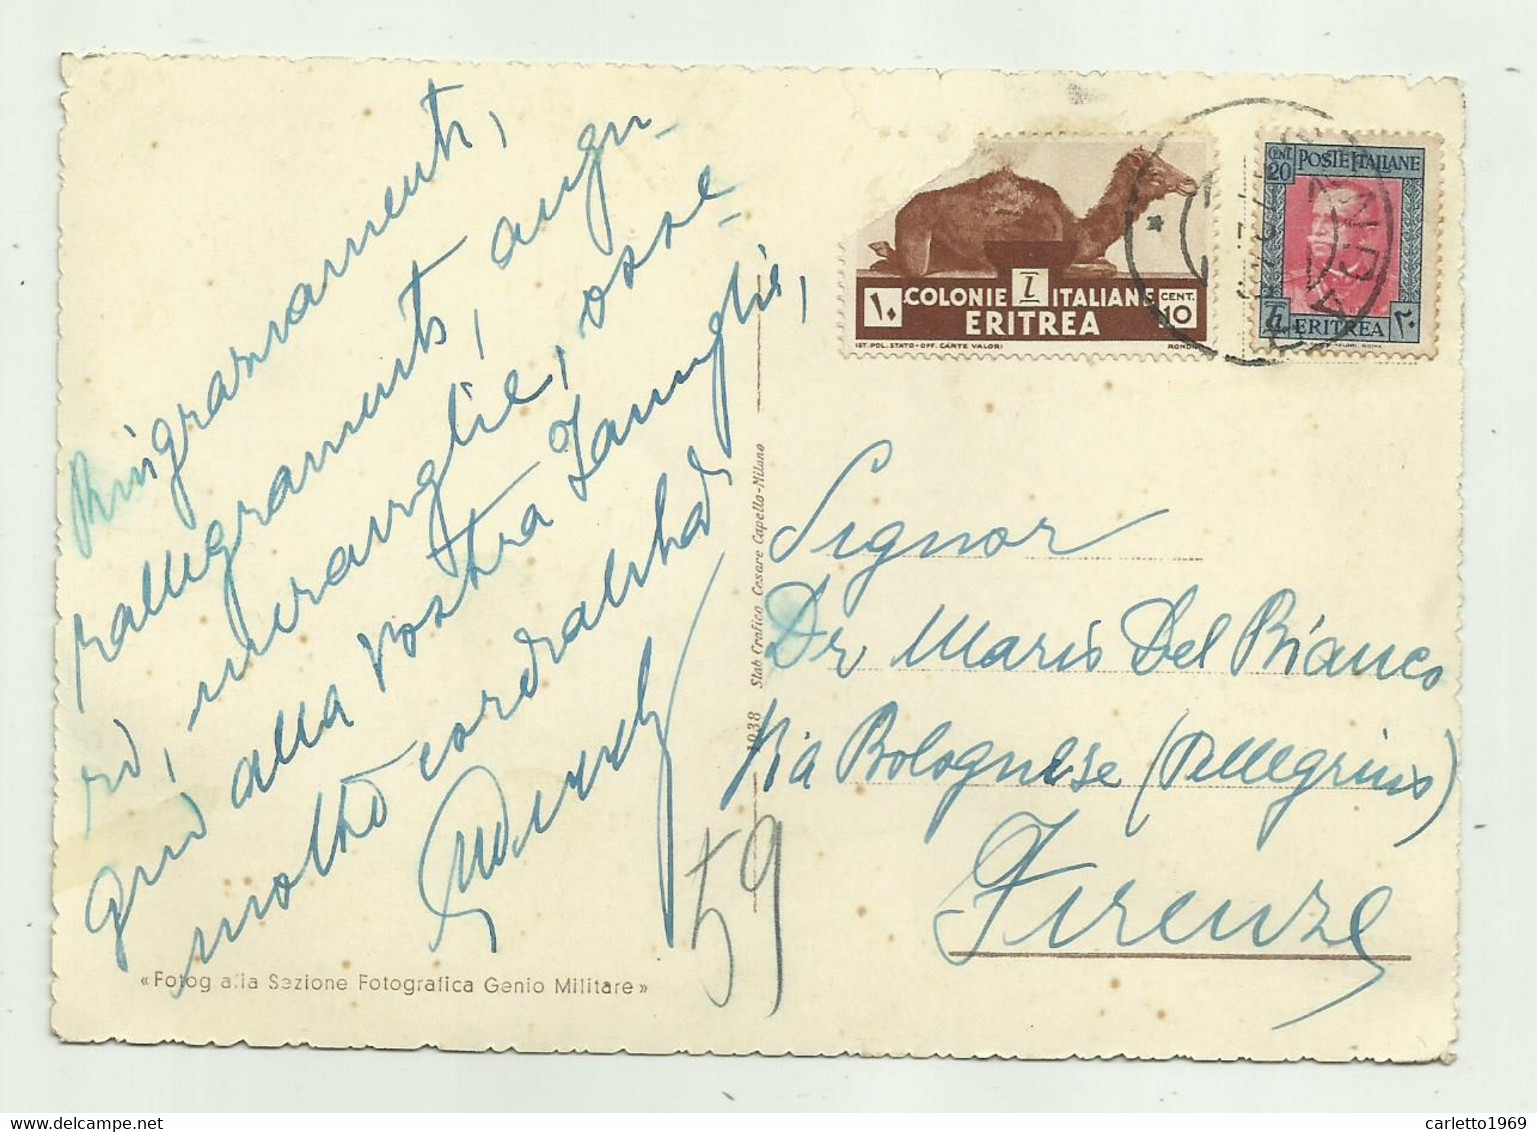 Ringraziamenti,
rallegramenti, augu-
ri, meraviglie, osse-
qui alla vostra Famiglia,
molto cordialità
COLONIE ITALIANE
١٠ CENT. 10
ERITREA
IST. POL. STATO - OFF. CARTE VALORI
CENT 20 POSTE ITALIANE
ERITREA ٢٠
Signor
Dr Mario Del Bianco
Via Bolognese (Pellegrino)
Firenze
59
1938 Stab Grafico Cesare Capello - Milano
«Fotog alla Sezione Fotografica Genio Militare»
carletto1969